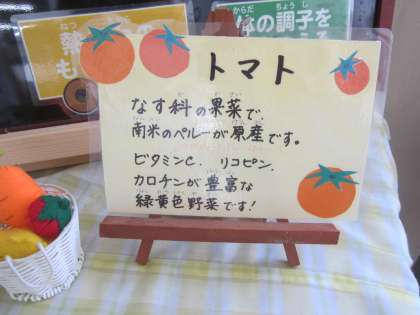 からだ ちょうし
体の調子を
トマト
なす科の果菜で
南米のペルーが原産です。
ビタミンC. リコピン.
カロチンが豊富な
緑黄色野菜です!